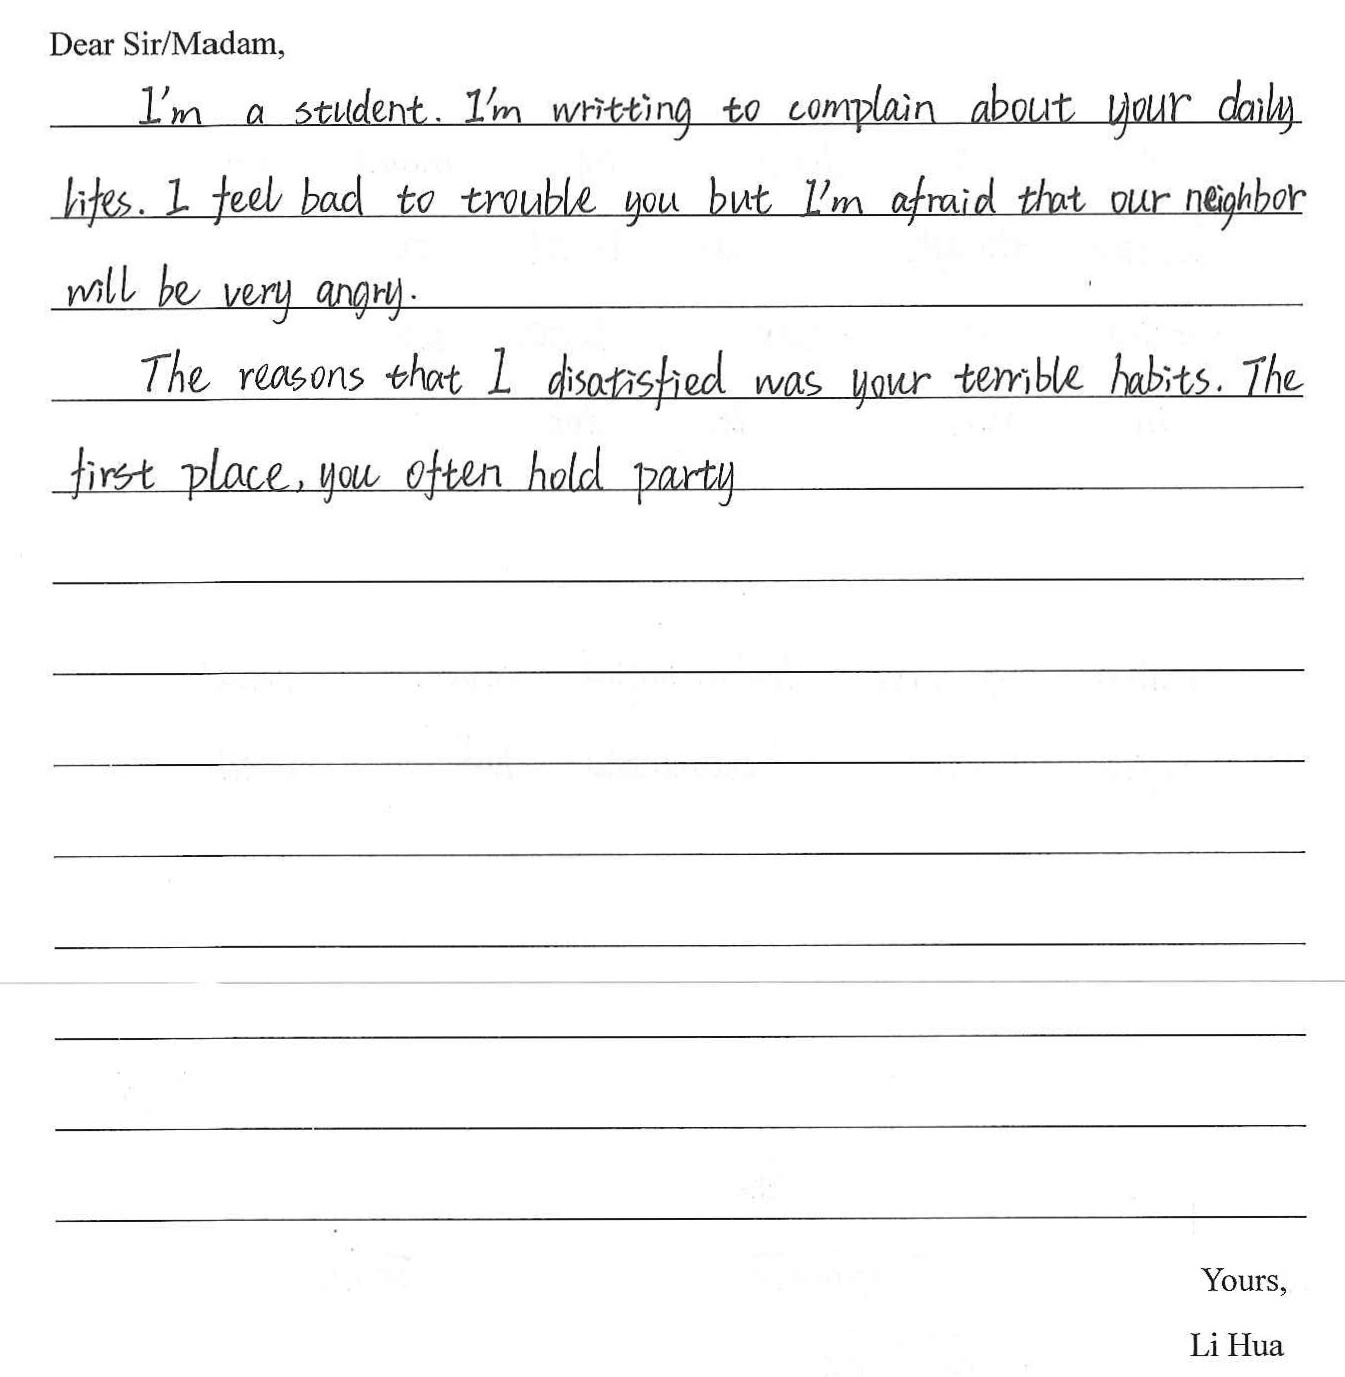 Dear Sir/Madam,
I'm a student. I'm writting to complain about your daily
lifes. I feel bad to trouble you but I'm afraid that our neighbor
will be very angry.
The reasons that I disatisfied was your terrible habits. The
first place, you often hold party
Yours,
Li Hua